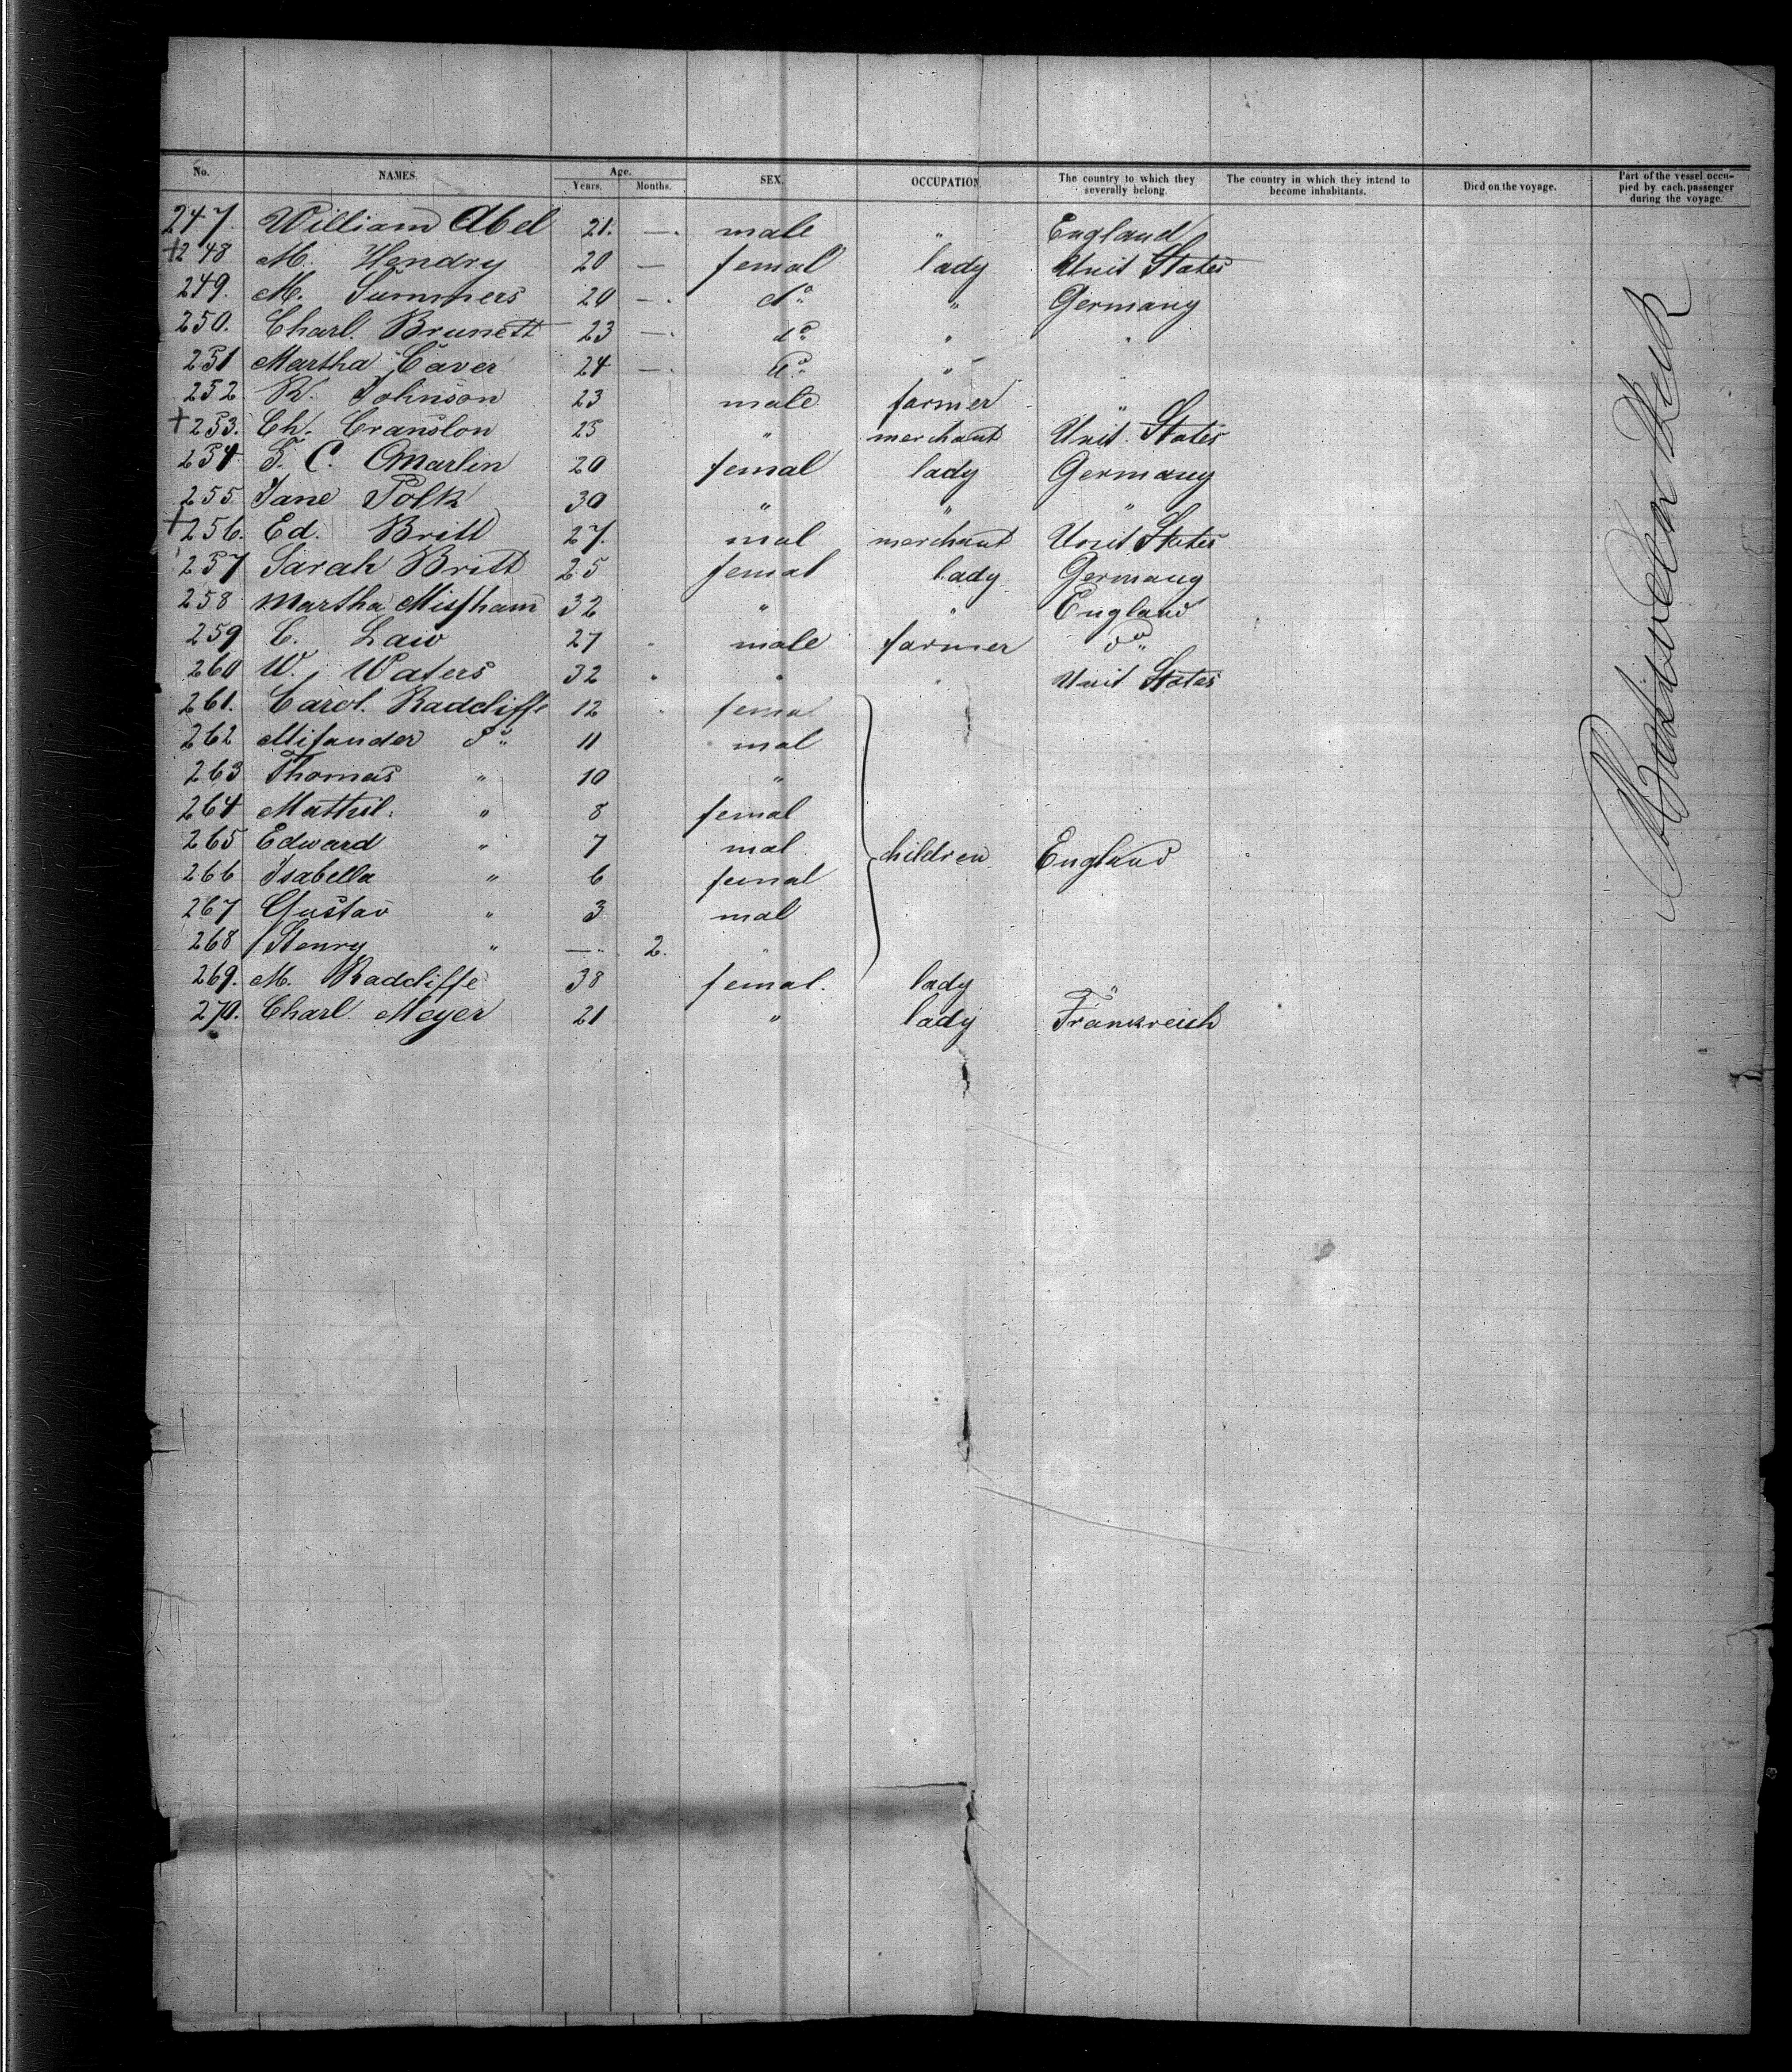 No. NAMES. Age. Years. Months. SEX. OCCUPATION. The country to which they severally belong. The country in which they intend to become inhabitants. Died on the voyage. Part of the vessel occupied by each passenger during the voyage.
247. William Abel 21. —. male " England
+248 M. Hendry 20 — femal lady Unit States
249. M. Summers 20 —. do " Germany
250. Charl. Brunett 23 —. do " "
251 Martha Caver 24 —. do "
252. W. Johnson 23 male farmer "
+253. Ch. Cranston 25 " merchant Unit. States
254 F. C. Marlin 20 femal lady Germany
255. Jane Polk 30 " " "
+256. Ed. Britt 27. mal merchant Unit States
257 Sarah Britt 25 femal lady Germany
258 Martha 32 " " England
259 C. Law 27 male farmer do
260 W. Waters 32 " " Unit States
261. Carol. Radcliffe 12 femal
262 do 11 mal
263 Thomas " 10 "
264 Mathil. " 8 femal
265 Edward " 7 mal children England
266 Isabella " 6 femal
267 Gustav " 3 mal
268 Henry " —. 2. "
269. M. Radcliffe 38 femal. lady "
270. Charl. Meyer 21 " lady Frankreich